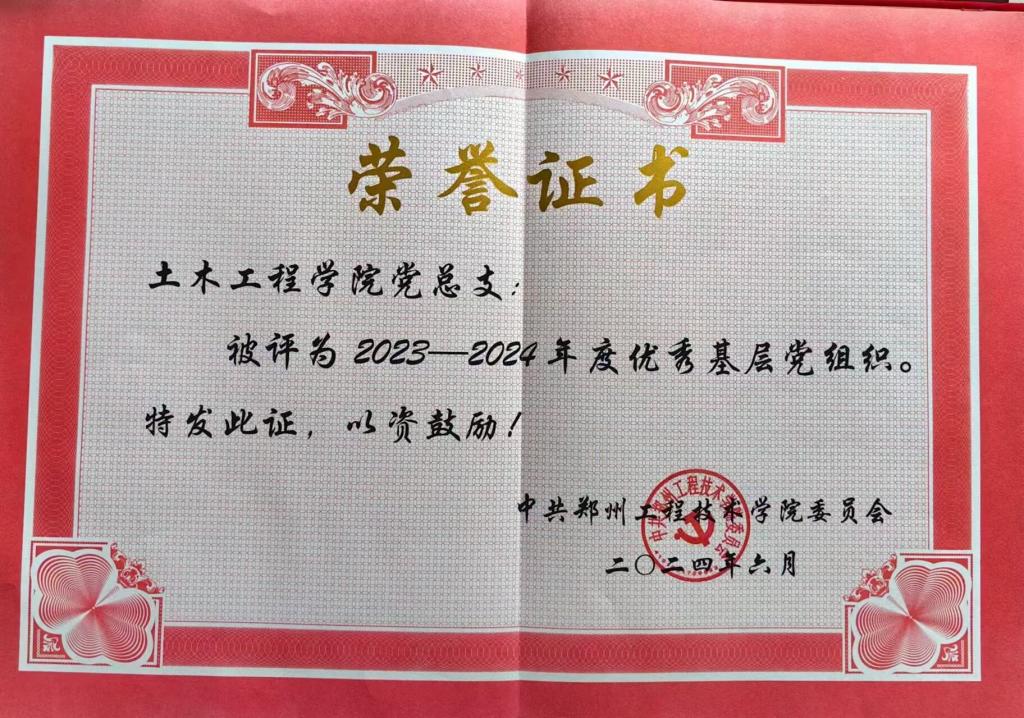 荣誉证书
土木工程学院党总支：
被评为 2023—2024 年度优秀基层党组织。
特发此证，以资鼓励！
中共郑州工程技术学院委员会
二〇二四年六月
中共郑州工程技术学院委员会